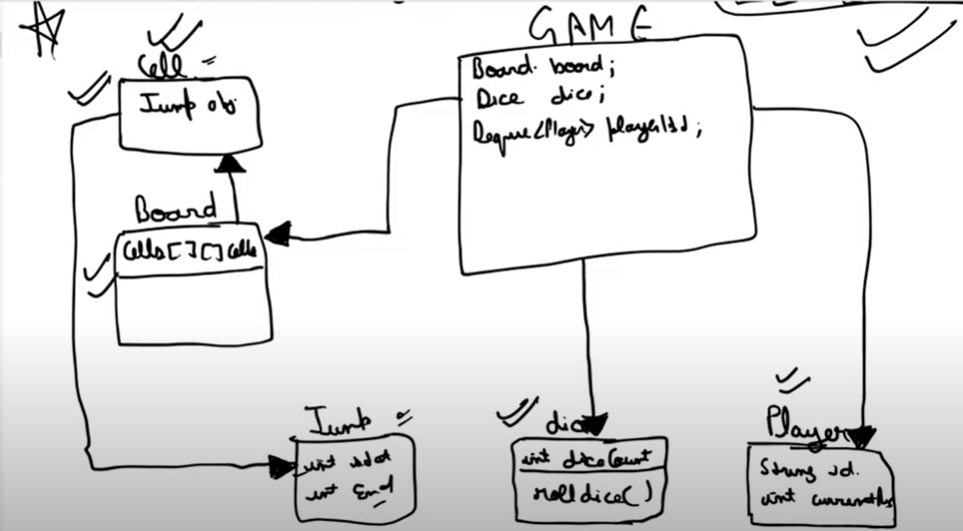 GAME
Board board;
Dice dice;
Deque<Player> playerlist;
Cell
Jump obj
Board
Cells[][] cells
Jump
int start
int End
dice
int diceCount
rolldice()
Player
String id.
int